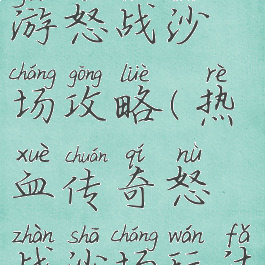 游怒战沙
cháng gōng lüè rè
场攻略(热
xuè chuán qí nù
血传奇怒
zhàn shā chǎng wán fǎ
战沙场玩法